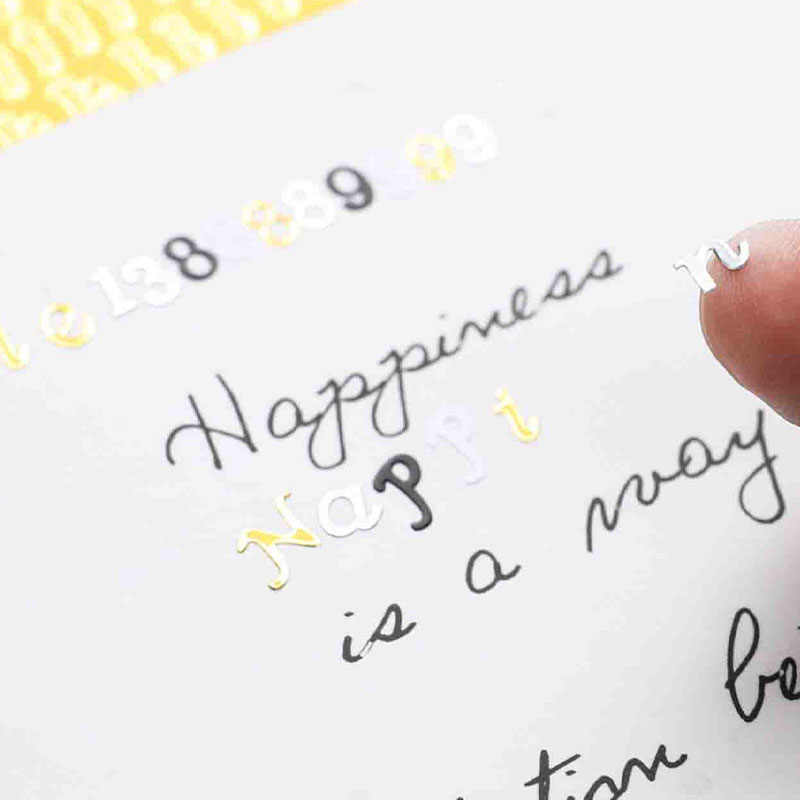 le138888999
Happiness
n
Nappi
is a way
be
tion